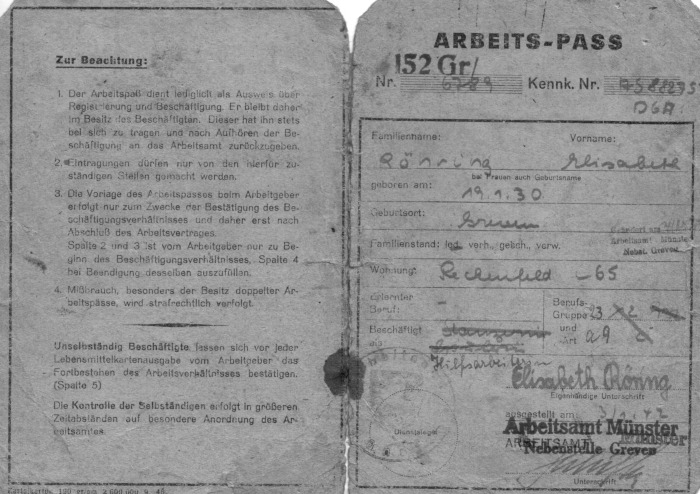 Zur Beachtung:
1. Der Arbeitspaß dient lediglich als Ausweis über
Registrierung und Beschäftigung. Er bleibt daher
im Besitz des Beschäftigten. Dieser hat ihn stets
bei sich zu tragen und nach Aufhören der Be-
schäftigung an das Arbeitsamt zurückzugeben.
2. Eintragungen dürfen nur von den hierfür zu-
ständigen Stellen gemacht werden.
3. Die Vorlage des Arbeitspasses beim Arbeitgeber
erfolgt nur zum Zwecke der Bestätigung des Be-
schäftigungsverhältnisses und daher erst nach
Abschluß des Arbeitsvertrages.
Spalte 2 und 3 ist vom Arbeitgeber nur zu Be-
ginn des Beschäftigungsverhältnisses, Spalte 4
bei Beendigung desselben auszufüllen.
4. Mißbrauch, besonders der Besitz doppelter Ar-
beitspässe, wird strafrechtlich verfolgt.
Unselbständig Beschäftigte lassen sich vor jeder
Lebensmittelkartenausgabe vom Arbeitgeber das
Fortbestehen des Arbeitsverhältnisses bestätigen.
(Spalte 5)
Die Kontrolle der Selbständigen erfolgt in größeren
Zeitabständen auf besondere Anordnung des Ar-
beitsamtes.
ARBEITS-PASS
152 Gr/
Nr. 6789 Kennk. Nr.
Familienname: Vorname:
Rönring Elisabeth
bei Frauen auch Geburtsname
geboren am: 19.1.30
Geburtsort: Greven
Arbeitsamt Münster
Nebst. Greven
Familienstand: led. verh., gesch., verw.
Wohnung: Reckenfeld - 65
Erlernter
Beruf: -
Berufs-
Gruppe 23
und
-Art 29
Beschäftigt
als:
Hilfsarbeiterin
Elisabeth Rönng
Eigenhändige Unterschrift
ausgestellt am:
Dienstsiegel
Arbeitsamt Münster
ARBEITSAMT Münster
Nebenstelle Greven
Unterschrift